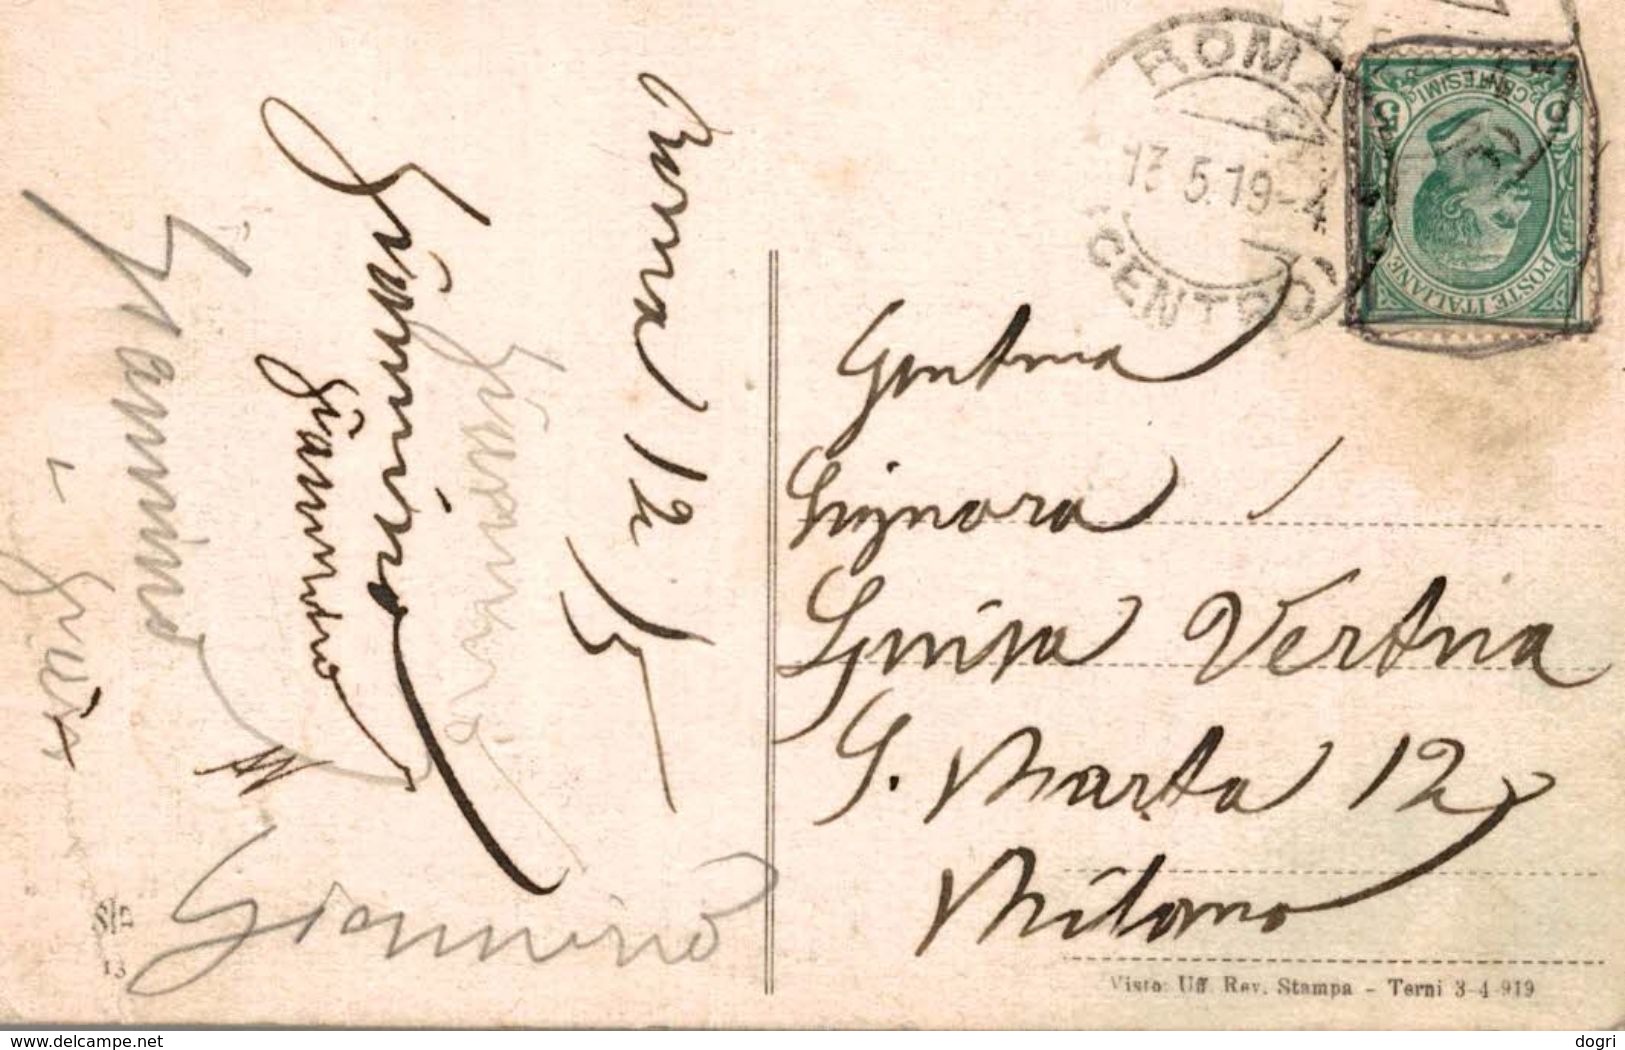 Roma 12/5
Giannino
Giannino
Giannino
Giannino
Giannino
ROMA
13.5.19-4
CENTRO
POSTE ITALIANE
CENTESIMI
5
5
Gentma
Signora
Luisa Vertua
S. Marta 12
Milano
Visto: Uff. Rev. Stampa - Terni 3-4-919
13
www.delcampe.net
dogri